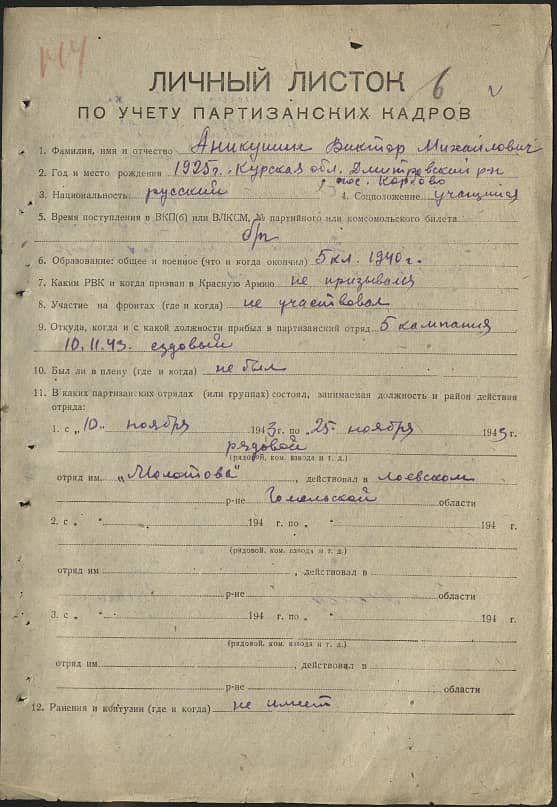 144
ЛИЧНЫЙ ЛИСТОК 6 v
ПО УЧЕТУ ПАРТИЗАНСКИХ КАДРОВ
1. Фамилия, имя и отчество Аникушин Виктор Михайлович
2. Год и место рождения 1925г. Курская обл. Дмитровский р-н
, пос. Корбово
3. Национальность русский 4. Соцположение учащийся
5. Время поступления в ВКП(б) или ВЛКСМ, № партийного или комсомольского билета
б/п
6. Образование: общее и военное (что и когда окончил) 5 кл. 1940 г.
7. Каким РВК и когда призван в Красную Армию не призывался
8. Участие на фронтах (где и когда) не участвовал
9. Откуда, когда и с какой должности прибыл в партизанский отряд 5 кампания
10.11.43. ездовый
10. Был ли в плену (где и когда) не был
11. В каких партизанских отрядах (или группах) состоял, занимаемая должность и район действия
отряда:
1. с „10.“ ноября 1943г. по „25 ноября 1943г.
рядовой
(рядовой, ком. взвода и т. д.)
отряд им. „Молотова“, действовал в Лоевском
р-не Гомельской области
2. с „ “ 194 г. по „ “ 194 г.
(рядовой, ком. взвода и т. д.)
отряд им , действовал в
р-не области
3. с „ “ 194 г. по „ “ 194 г.
(рядовой, ком. взвода и т. д.)
отряд им. , действовал в
р-не области
12. Ранения и контузии (где и когда) не имеет